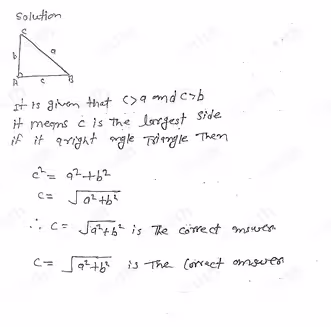 Solution
C
b a
A c B
It is given that c>a and c>b
it means c is the largest side
if it aright angle Triangle Then
c² = a²+b²
c = √a²+b²
∴ c = √a²+b² is The correct answer
c = √a²+b² is The correct answer